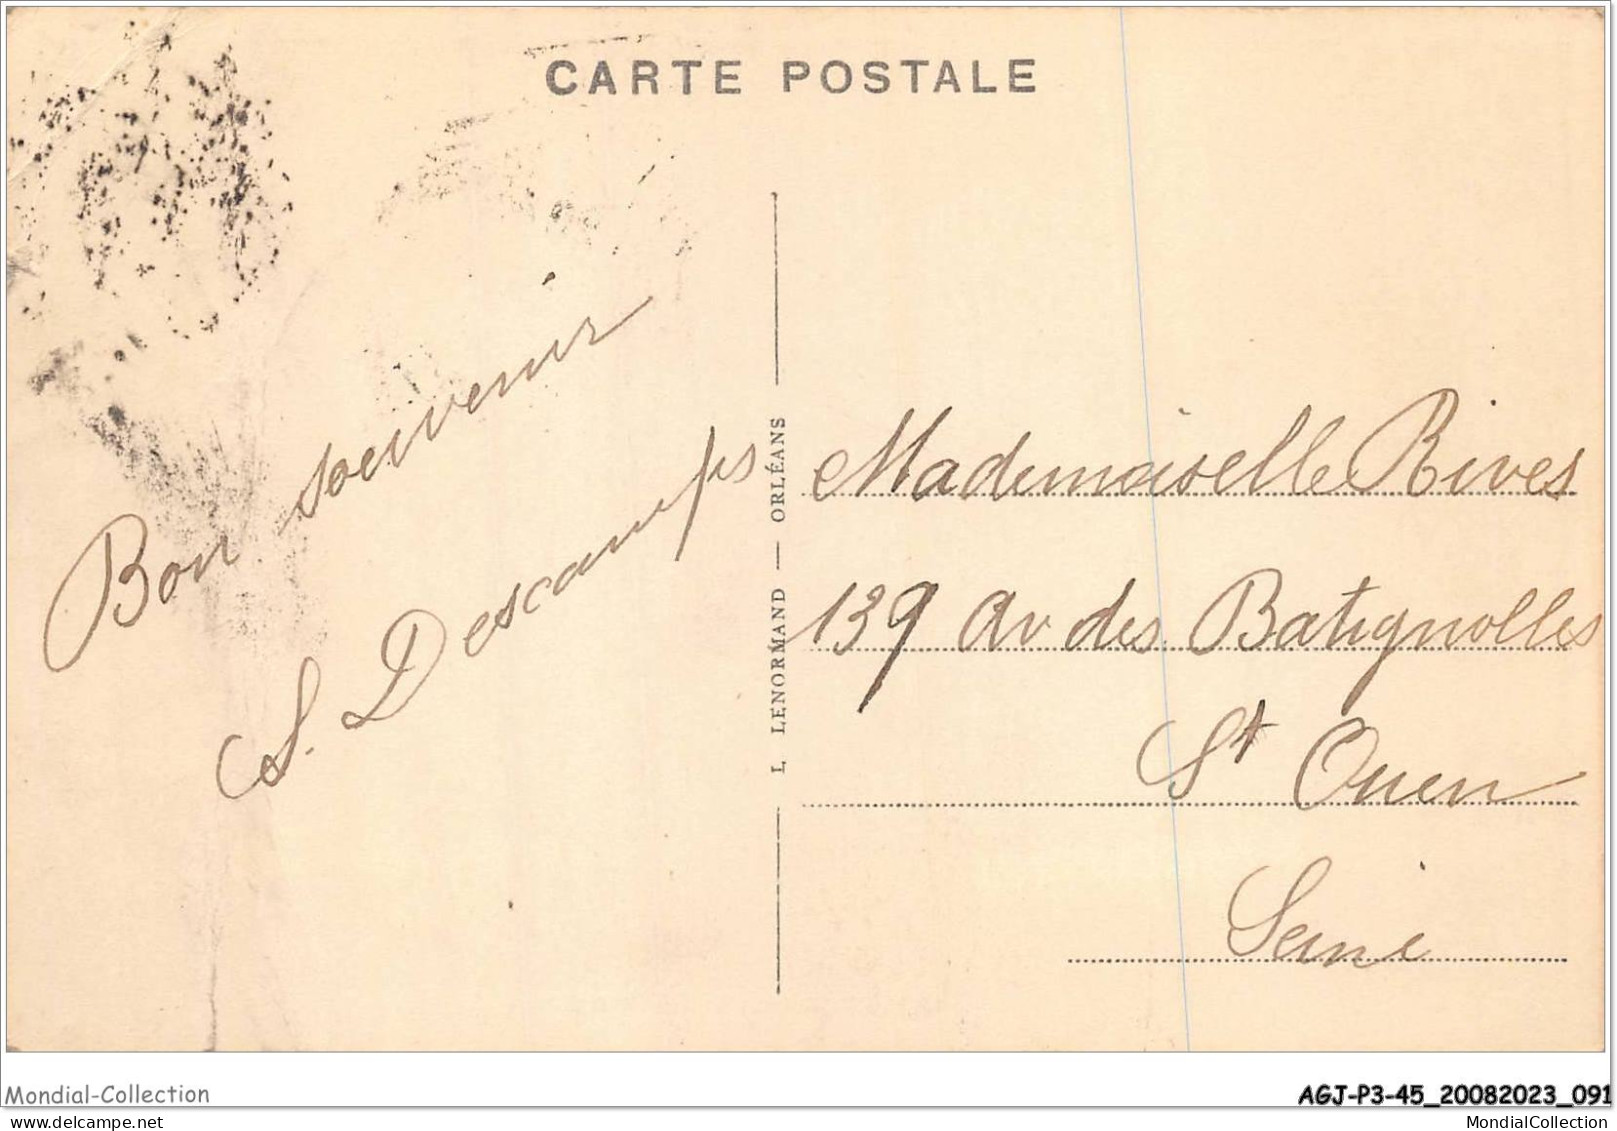 CARTE POSTALE
Bon souvenir
S. Descamps
L. LENORMAND — ORLÉANS
Mademoiselle Rives
139 Av des Batignolles
St Ouen
Seine
Mondial-Collection
AGJ-P3-45_20082023_091
delcampe.net
MondialCollection